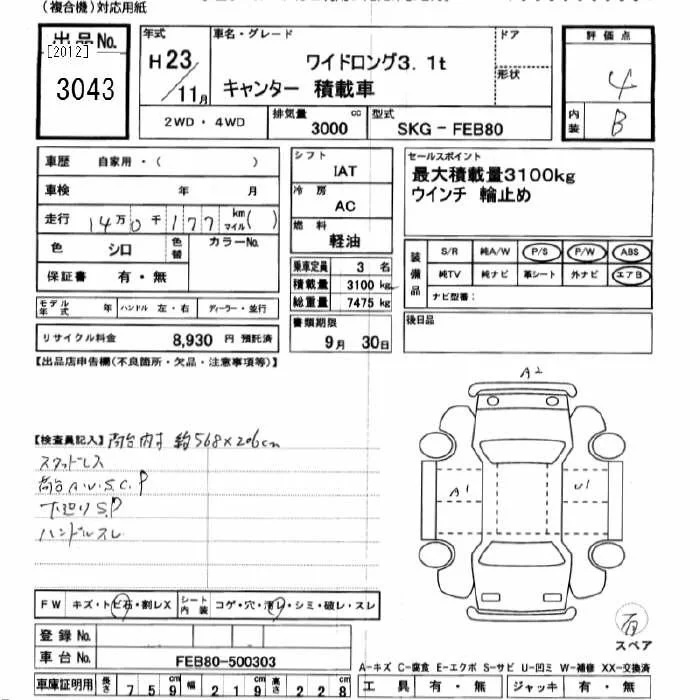 (複合機)対応用紙
出品No.
[2012]
3043
年式
H23/11月
車名・グレード
ワイドロング3.1t
キャンター 積載車
ドア
形状
評価点
4
内装
B
2WD・4WD
排気量
3000 cc
型式
SKG-FEB80
車歴 自家用・( )
車検 年 月
走行 14万0千177 km マイル( )
色 シロ 色替 カラーNo.
保証書 有・無
シフト
IAT
冷房
AC
燃料
軽油
乗車定員 3 名
積載量 3100 kg
総重量 7475 kg
セールスポイント
最大積載量3100kg
ウインチ 輪止め
装備品
S/R 純A/W P/S P/W ABS
純TV 純ナビ 革シート 外ナビ エアB
ナビ型番:
モデル年式 年 ハンドル 左・右 ディーラー・並行
リサイクル料金 8,930 円 預託済
書類期限
9月 30日
後日品
【出品店申告欄(不良箇所・欠品・注意事項等)】
A2
【検査員記入】荷台内寸 約568×206cm
スタッドレス
荷台A.U.S.C.P
下廻りS.P
ハンドルスレ
A1
U1
FW キズ・トビ石・割レX シート内装 コゲ・穴・汚レ・シミ・破レ・スレ
有
スペア
登録No.
車台No. FEB80-500303
A-キズ C-腐食 E-エクボ S-サビ U-凹ミ W-補修 XX-交換済
車庫証明用 長さ 759 幅 219 高さ 228
工具 有・無 ジャッキ 有・無